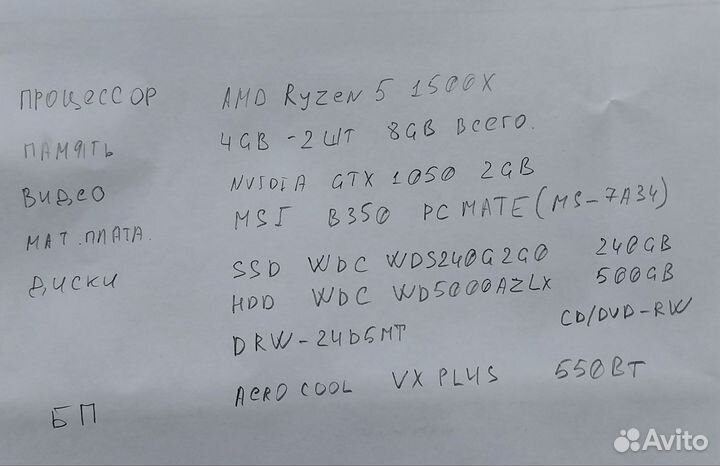 ПРОЦЕССОР AMD Ryzen 5 1500X
ПАМЯТЬ 4GB - 2ШТ 8GB ВСЕГО.
ВИДЕО NVIDIA GTX 1050 2GB
МАТ.ПЛАТА. MSI B350 PC MATE (MS-7A34)
ДИСКИ SSD WDC WDS240G2G0 240GB
HDD WDC WD5000AZLX 500GB
DRW-24D5MT CD/DVD-RW
БП AEROCOOL VX PLUS 550ВТ
Avito